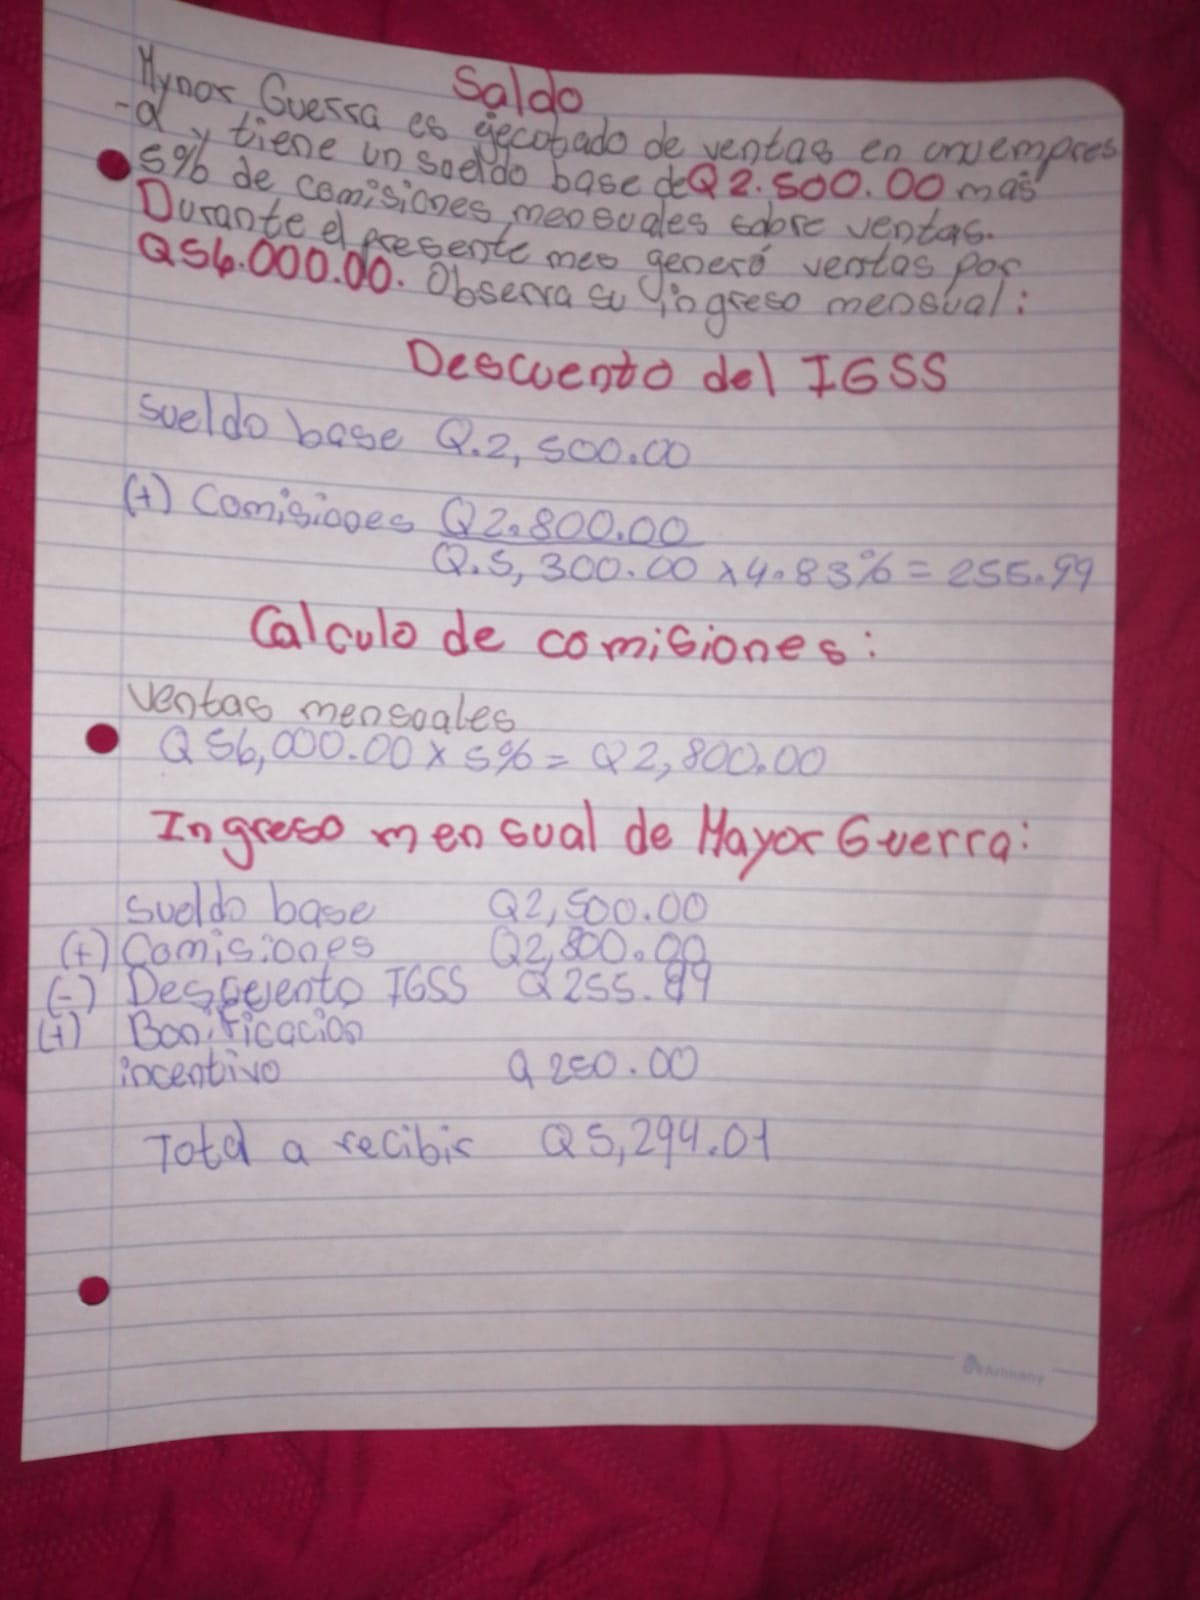 Saldo
Mynor Guerra es ejecotado de ventas en una empres
-a y tiene un soeldo base de Q2.500.00 mas
5% de comisiones mensuales sobre ventas.
Durante el presente mes generó ventas por
Q56.000.00. Observa su ingreso mensual:
Descuento del IGSS
sueldo base Q.2,500.00
(+) Comisiones Q2.800.00
Q.5,300.00 x4.83% = 255.99
Calculo de comisiones:
ventas mensuales
Q56,000.00 x 5% = Q2,800.00
Ingreso mensual de Mayor Guerra:
sueldo base Q2,500.00
(+) Comisiones Q2,800.00
(-) Descuento IGSS Q255.99
(+) Bonificacion
incentivo Q250.00
Total a recibir Q5,294.01